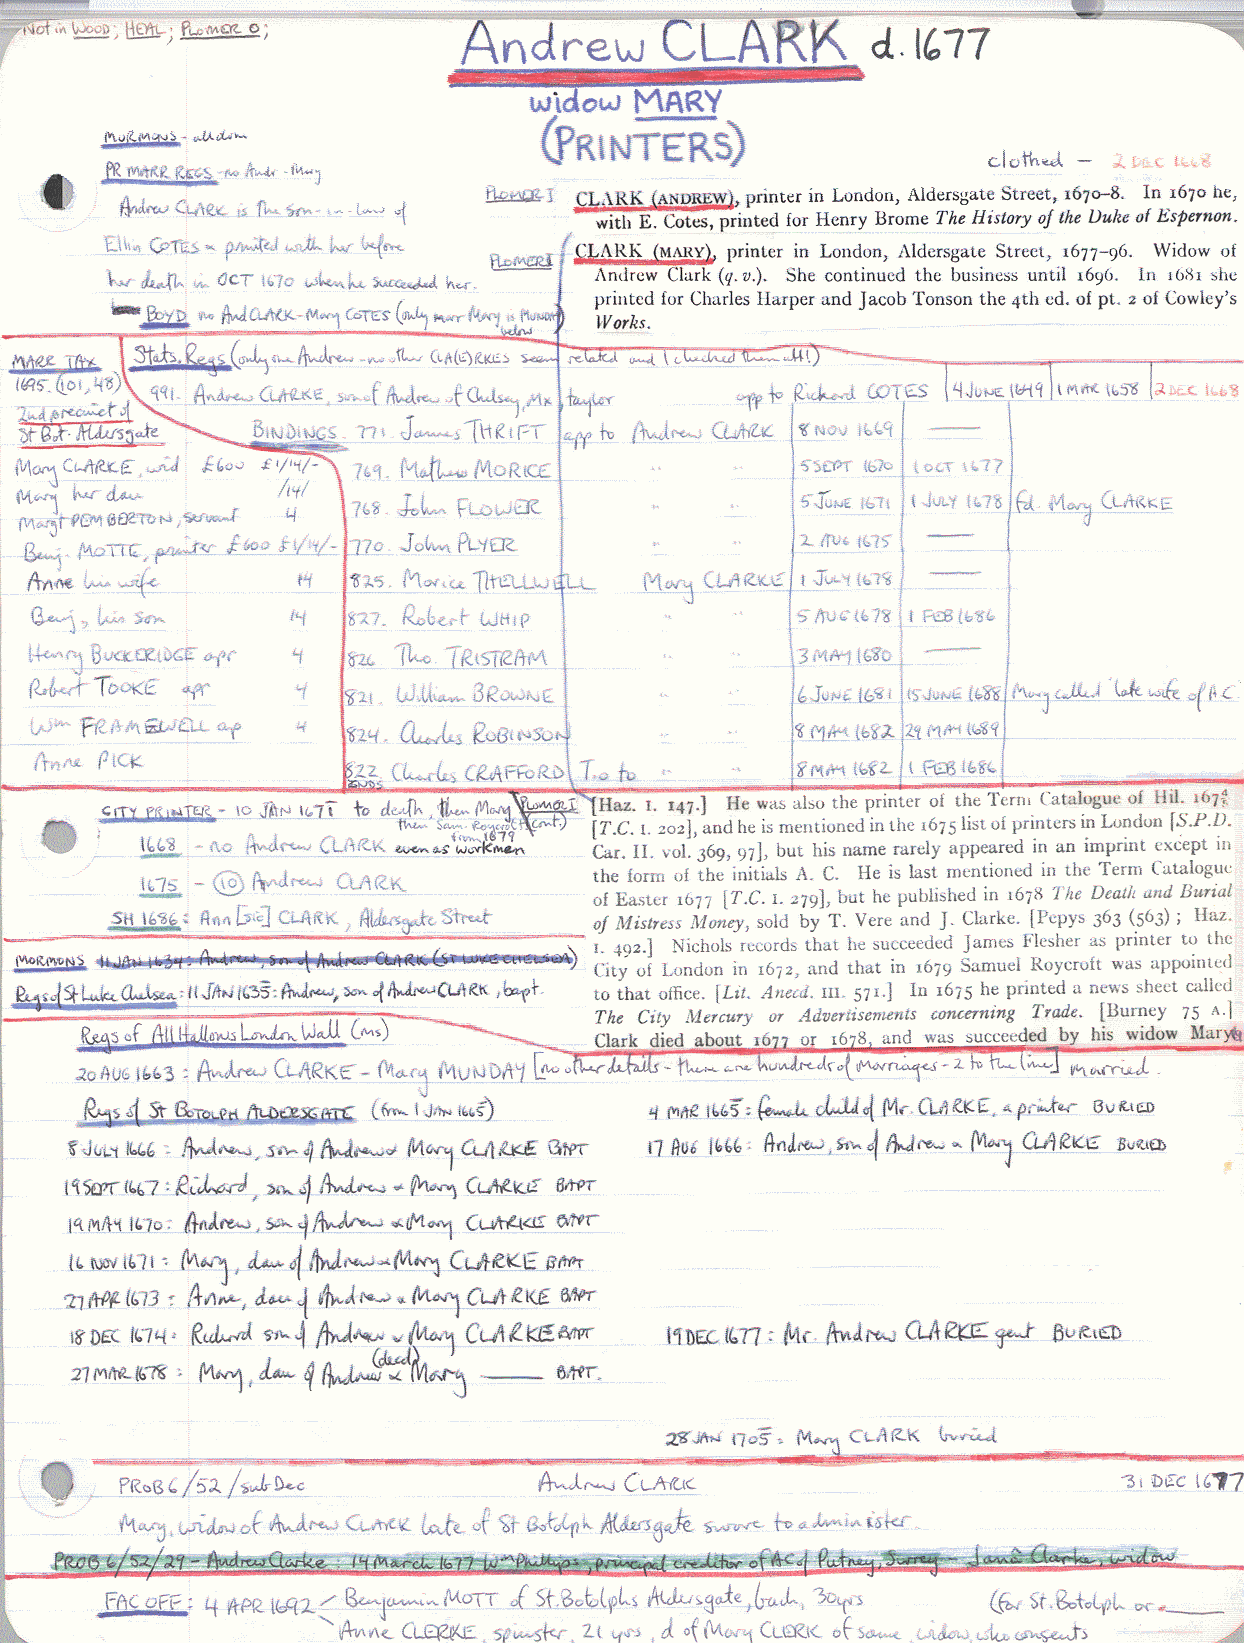 Not in WOOD; HEAL; PLOMER O;
Andrew CLARK d. 1677
widow MARY
(PRINTERS)
clothed — 2 DEC 1668
MORMONS - all dom
PR MARR REGS - no Andr - Mary
Andrew CLARK is the son-in-law of
Ellin COTES & printed with her before
her death in OCT 1670 when he succeeded her.
BOYD no And CLARK - Mary COTES (only marr Mary is MUNDAY
below)
PLOMER I CLARK (ANDREW), printer in London, Aldersgate Street, 1670–8. In 1670 he,
with E. Cotes, printed for Henry Brome The History of the Duke of Espernon.
PLOMER I CLARK (MARY), printer in London, Aldersgate Street, 1677–96. Widow of
Andrew Clark (q. v.). She continued the business until 1696. In 1681 she
printed for Charles Harper and Jacob Tonson the 4th ed. of pt. 2 of Cowley's
Works.
MARR TAX
1695. (101, 48)
2nd precinct of
St Bot. Aldersgate
Mary CLARKE, wid £600 £1/14/-
Mary her dau /14/
Margt PEMBERTON, servant 4
Benj. MOTTE, printer £600 £1/14/-
Anne his wife 14
Benj, his son 14
Henry BUCKERIDGE apr 4
Robert TOOKE apr 4
Wm FRAMEWELL ap 4
Anne PICK
Stats. Regs (only one Andrew - no other CLA(E)RKES seem related and I checked them all!)
991. Andrew CLARKE, son of Andrew of Chelsey, Mx, taylor app to Richard COTES 4 JUNE 1649 1 MAR 1658 2 DEC 1668
BINDINGS. 771. James THRIFT app to Andrew CLARK 8 NOV 1669 —
769. Mathew MORICE " " 5 SEPT 1670 1 OCT 1677
768. John FLOWER " " 5 JUNE 1671 1 JULY 1678 fd. Mary CLARKE
770. John PLYER " " 2 AUG 1675 —
825. Morice THELLWELL Mary CLARKE 1 JULY 1678 —
827. Robert WHIP " " 5 AUG 1678 1 FEB 1686
826 Tho. TRISTRAM " " 3 MAY 1680 —
821. William BROWNE " " 6 JUNE 1681 15 JUNE 1688 Mary called 'late wife of A.C.'
824. Charles ROBINSON " " 8 MAY 1682 29 MAY 1689
822. Charles CRAFFORD T.o to " " 8 MAY 1682 1 FEB 1686
ENDS
CITY PRINTER - 10 JAN 1671 to death, then Mary
then Sam. Roycroft
from 1679
1668 - no Andrew CLARK even as workmen
1675 - (10) Andrew CLARK
SH 1686: Ann [sic] CLARK, Aldersgate Street
PLOMER I
(cont.)
[Haz. I. 147.] He was also the printer of the Term Catalogue of Hil. 167¾
[T.C. I. 202], and he is mentioned in the 1675 list of printers in London [S.P.D.
Car. II. vol. 369, 97], but his name rarely appeared in an imprint except in
the form of the initials A. C. He is last mentioned in the Term Catalogue
of Easter 1677 [T.C. I. 279], but he published in 1678 The Death and Burial
of Mistress Money, sold by T. Vere and J. Clarke. [Pepys 363 (563); Haz.
I. 492.] Nichols records that he succeeded James Flesher as printer to the
City of London in 1672, and that in 1679 Samuel Roycroft was appointed
to that office. [Lit. Anecd. III. 571.] In 1675 he printed a news sheet called
The City Mercury or Advertisements concerning Trade. [Burney 75 A.]
Clark died about 1677 or 1678, and was succeeded by his widow Mary
MORMONS 11 JAN 1634: Andrew, son of Andrew CLARK (ST LUKE CHELSEA)
Regs of St Luke Chelsea: 11 JAN 1635: Andrew, son of Andrew CLARK, bapt.
Regs of All Hallows London Wall (ms)
20 AUG 1663: Andrew CLARKE - Mary MUNDAY [no other details - there are hundreds of marriages - 2 to the line] married.
Regs of St BOTOLPH ALDERSGATE (from 1 JAN 1665)
4 MAR 1665: female child of Mr. CLARKE, a printer BURIED
8 JULY 1666: Andrew, son of Andrew & Mary CLARKE BAPT
17 AUG 1666: Andrew, son of Andrew & Mary CLARKE BURIED
19 SEPT 1667: Richard, son of Andrew & Mary CLARKE BAPT
19 MAY 1670: Andrew, son of Andrew & Mary CLARKE BAPT
16 NOV 1671: Mary, dau of Andrew & Mary CLARKE BAPT
27 APR 1673: Anne, dau of Andrew & Mary CLARKE BAPT
18 DEC 1674: Richard son of Andrew & Mary CLARKE BAPT
19 DEC 1677: Mr. Andrew CLARKE gent BURIED
27 MAR 1678: Mary, dau of Andrew (decd) & Mary —— BAPT.
28 JAN 1705: Mary CLARK buried
PROB 6/52/sub Dec Andrew CLARK 31 DEC 1677
Mary, widow of Andrew CLARK late of St Botolph Aldersgate swore to administer.
PROB 6/52/29 - Andrew Clarke: 14 March 1677 Wm Phillips, principal creditor of AC of Putney, Surrey - Jane Clarke, widow
FAC OFF: 4 APR 1692 Benjamin MOTT of St. Botolphs Aldersgate, bach, 30 yrs (for St. Botolph or ——
Anne CLERKE, spinster, 21 yrs, d of Mary CLERK of same, widow, who consents